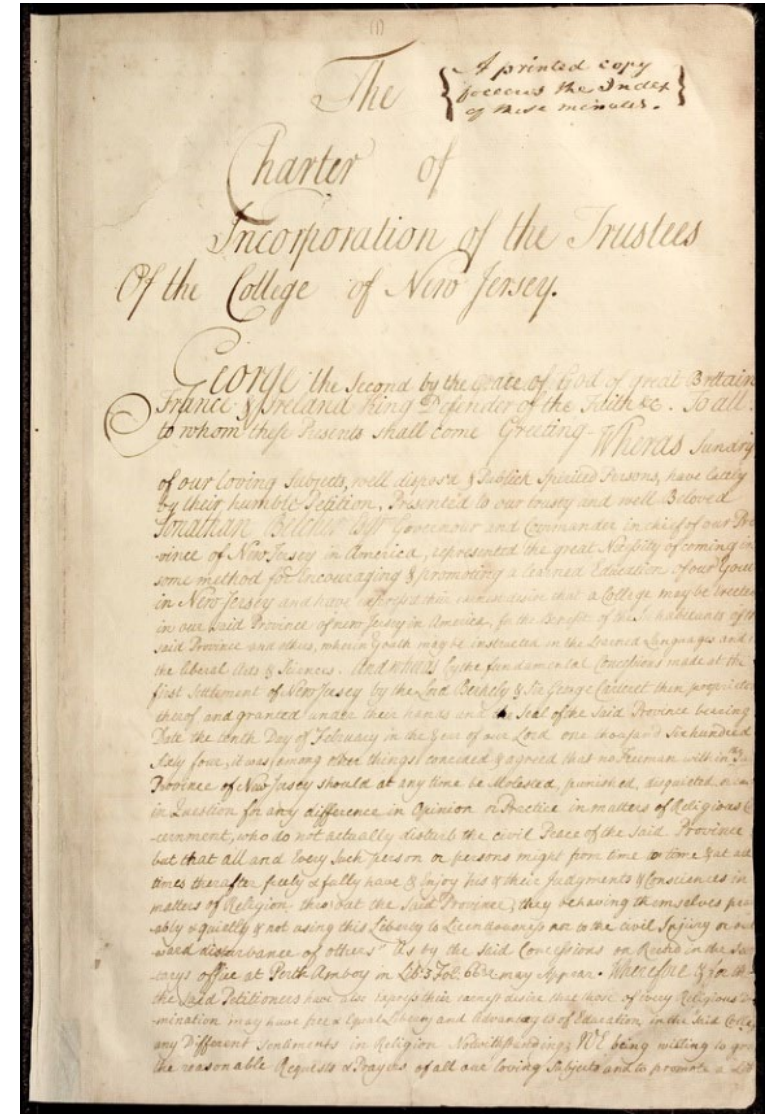 (1)
The
{ A printed copy
follows the Index
of these minutes. }
Charter of
Incorporation of the Trustees
Of the College of New Jersey.
George the Second by the Grace of God of great Brittain
France & Ireland King Defender of the Faith &c. To all
to whom these Presents shall come Greeting Wheras Sundry
of our loving Subjects, well dispos'd & Publick Spirited Persons, have lately
by their humble Petition, Presented to our trusty and well Beloved
Jonathan Belcher Esqr Governour and Commander in chief of our Pro
-vince of New Jersey in America, represented the great Necessity of coming in
some method for Encouraging & promoting a learned Education of our
in New Jersey and have express'd their earnest desire that a College may be Erected
in our said Province of new Jersey in America, for the Benefit of the Inhabitants of th
said Province and others, wherein Youth may be instructed in the Learned Languages and
the liberal Arts & Sciences. And wheras by the fundamental Concessions made at the
first Settlement of New Jersey by the Lord Berkely & Sir George Carteret then proprietor
therof and granted under their hands and the Seal of the Said Province bearing
Date the tenth Day of February in the Year of our Lord one thousand six hundred
Sixty four, it was among other things conceded & agreed that no Freeman within the
Province of New Jersey should at any time be Molested, punished, disquieted, or
in Question for any difference in Opinion or Practice in matters of Religious
-cernment, who do not actually disturb the civil Peace of the said Province
but that all and Every Such person or persons might from time to time & at all
times therafter freely & fully have & Enjoy his & their Judgments & Consciences in
matters of Religion thro'out the Said Province, they behaving themselves peac
-ably & quietly & not using this Liberty to Licentiousness nor to the civil Injury or out
-ward disturbance of others" As by the said Concessions on Record in the Secr
-tarys office at Perth Amboy in Lib: 3 Fol: may Appear. Wherefore & for
the said Petitioners have also express'd their earnest desire that those of every Religious D
-mination may have free & Equal Liberty and Advantages of Education in the said Colle
any Different Sentiments in Religion Notwithstanding; WE being willing to gra
the reasonable Requests & Prayers of all our loving Subjects and to promote a Lib